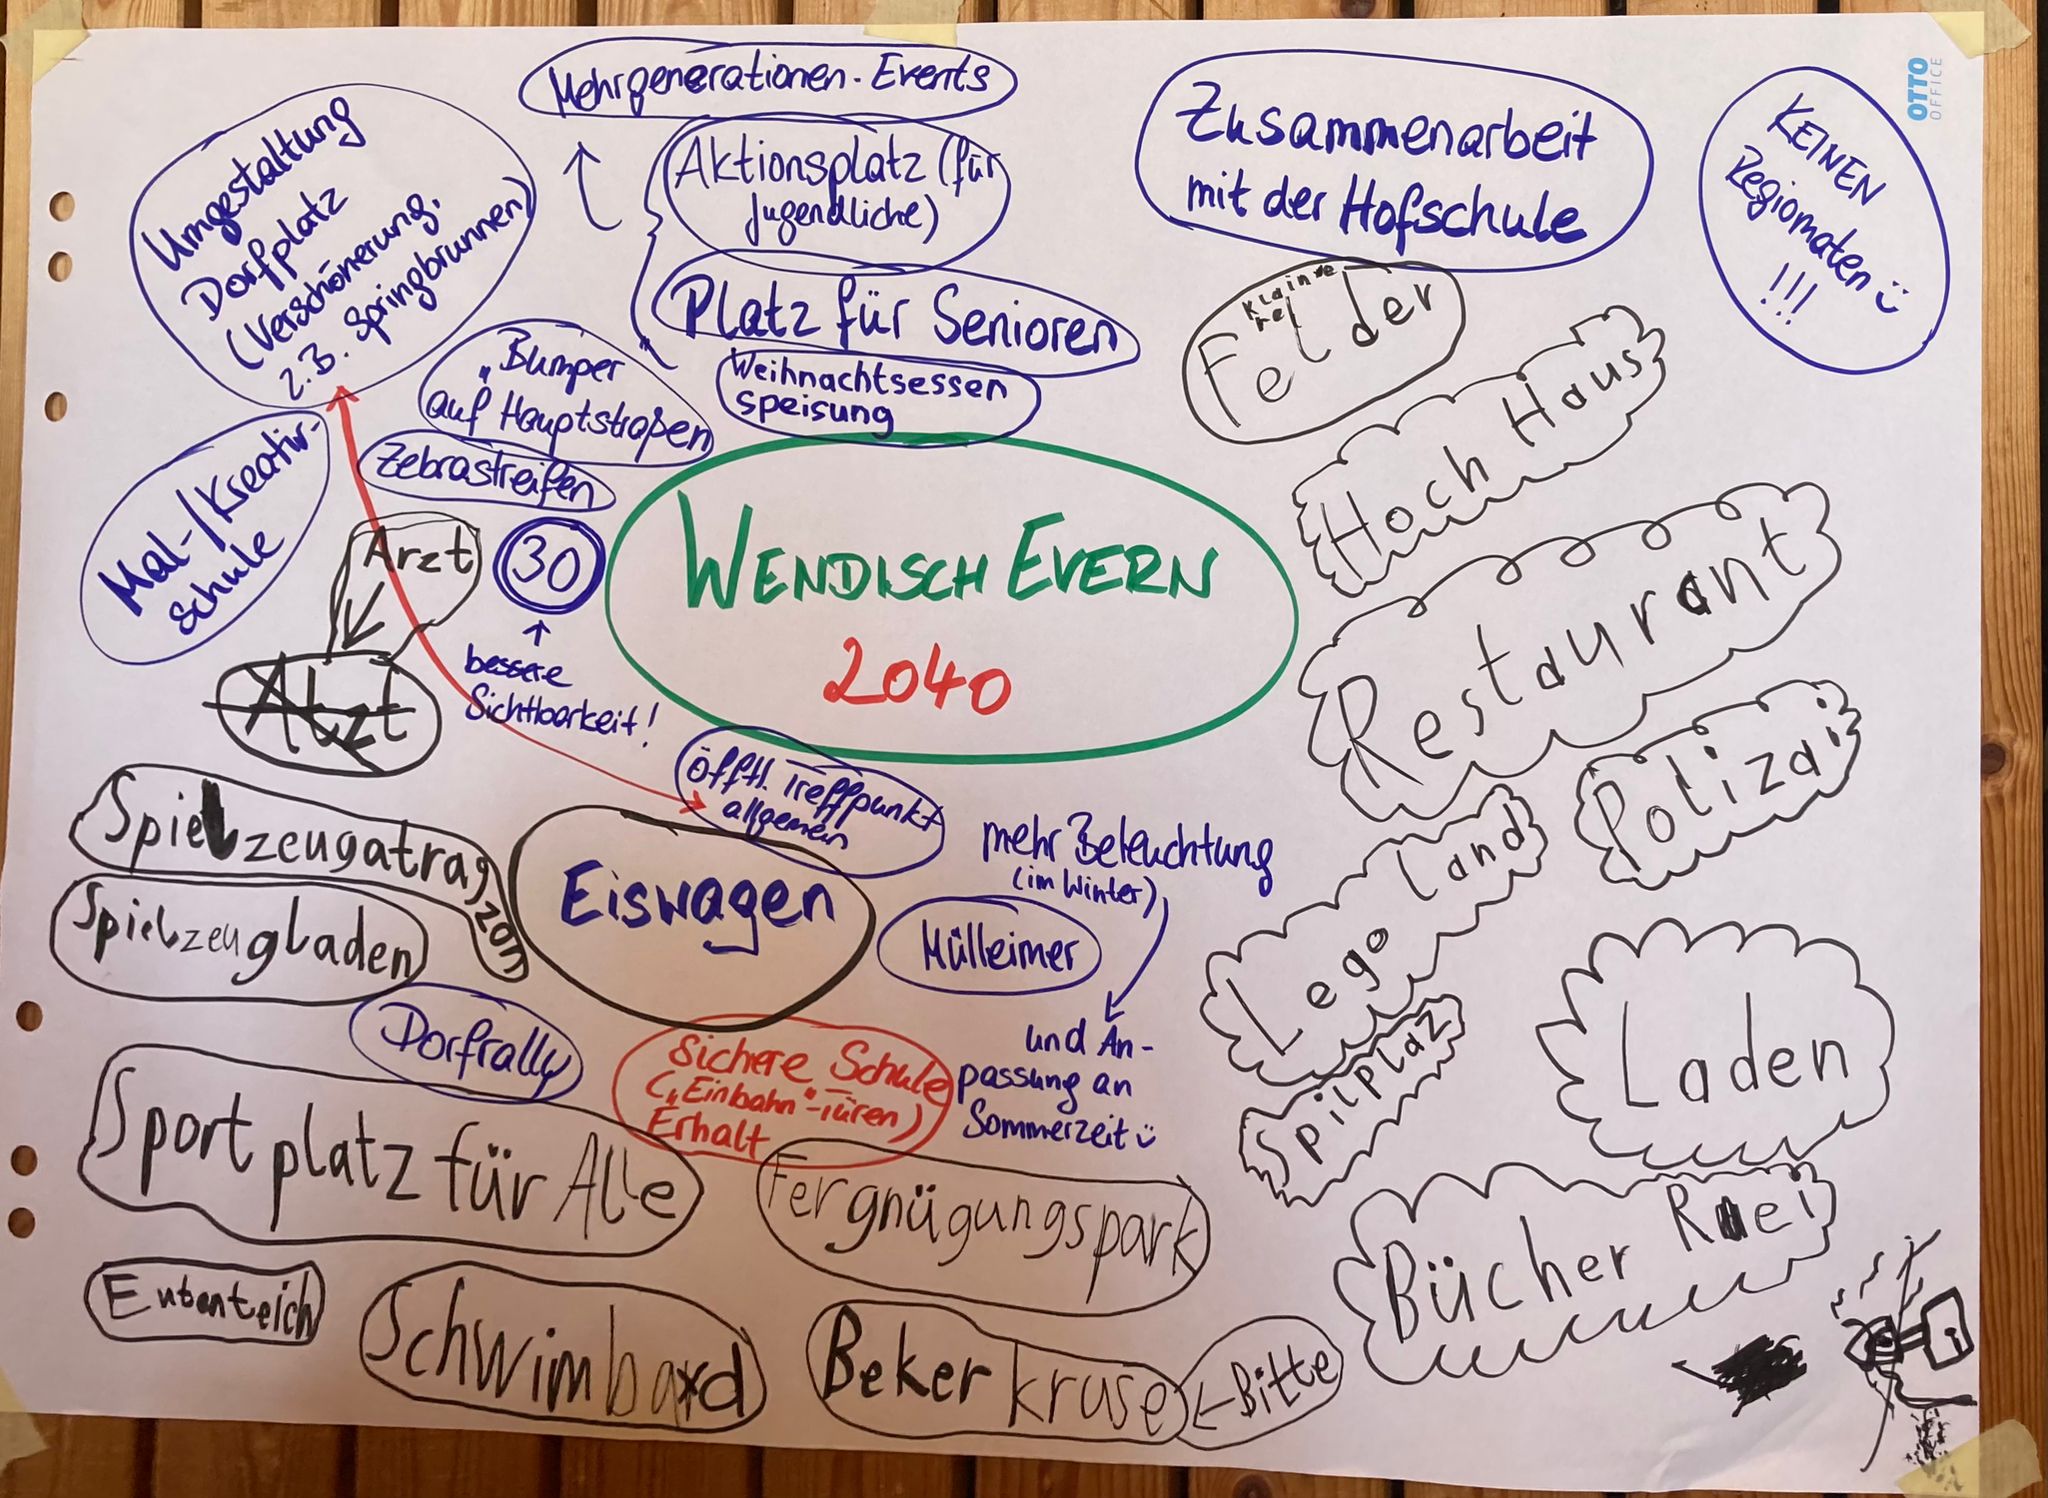 OTTO
OFFICE
Mehrgenerationen-Events
Umgestaltung
Dorfplatz
(Verschönerung,
z.B. Springbrunnen)
Aktionsplatz (für
Jugendliche)
Zusammenarbeit
mit der Hofschule
KEINEN
Regiomaten
!!!
Platz für Senioren
Weihnachtsessen
speisung
"Bumper
auf Hauptstraßen
Zebrastreifen
Felder
Hoch Haus
Mal-/Kreativ-
schule
Arzt
Atzt
30
bessere
Sichtbarkeit!
WENDISCH EVERN
2040
Restaurant
Polizai
Öfftl. Treffpunkt
allgemein
Spielzeugatragzon
Spielzeugladen
Eiswagen
mehr Beleuchtung
(im Winter)
Mülleimer
und An-
passung an
Sommerzeit
Lego Land
Spilplaz
Laden
Dorfrally
Sichere Schule
("Einbahn"-Türen)
Erhalt
Sportplatz für Alle
Fergnügungspark
Bücher Ruei
Ententeich
Schwimbad
Beker kruse
Bitte